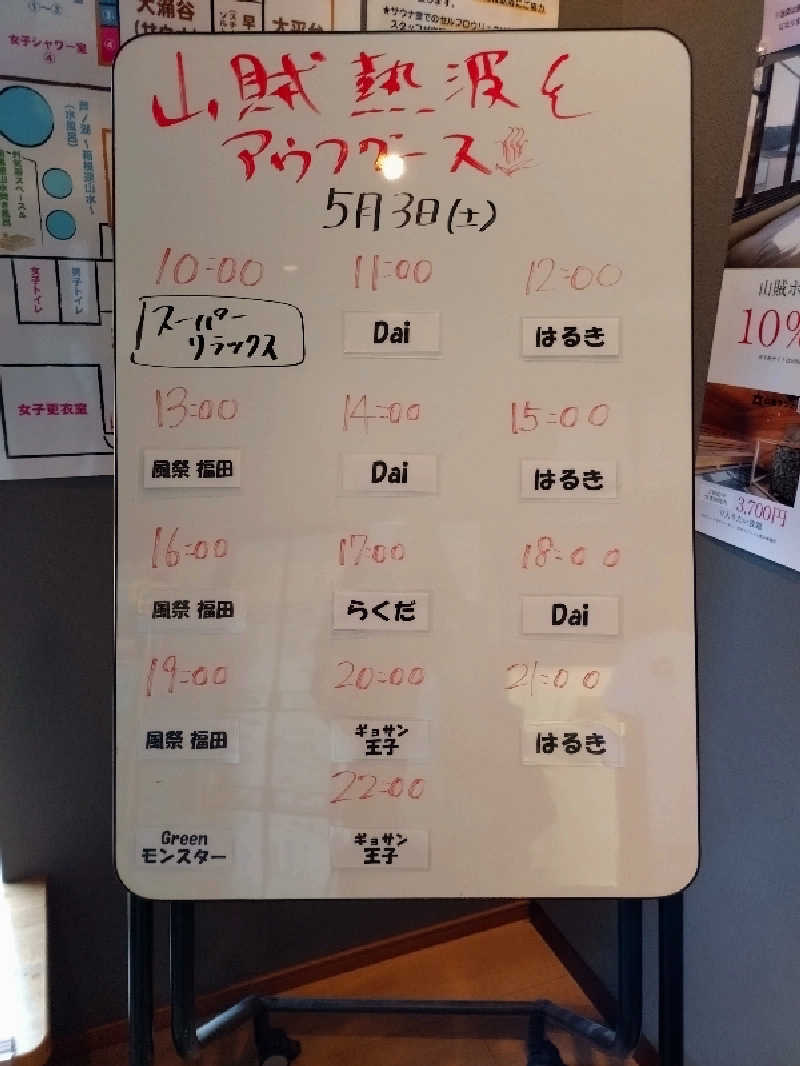 大涌谷
(サウナ
早
大平台
※サウナ室でのセルフロウリュ
女子シャワー室
④
①~③
(水風呂)
女子トイレ
男子トイレ
女子更衣室
山賊熱波&
アウフグース♨
5月3日(土)
10:00 11:00 12:00
スーパー
リラックス
Dai はるき
13:00 14:00 15:00
風祭 福田 Dai はるき
16:00 17:00 18:00
風祭 福田 らくだ Dai
19:00 20:00 21:00
風祭 福田 ギョサン
王子 はるき
22:00
Green
モンスター
ギョサン
王子
山賊ホ
10%
3,700円